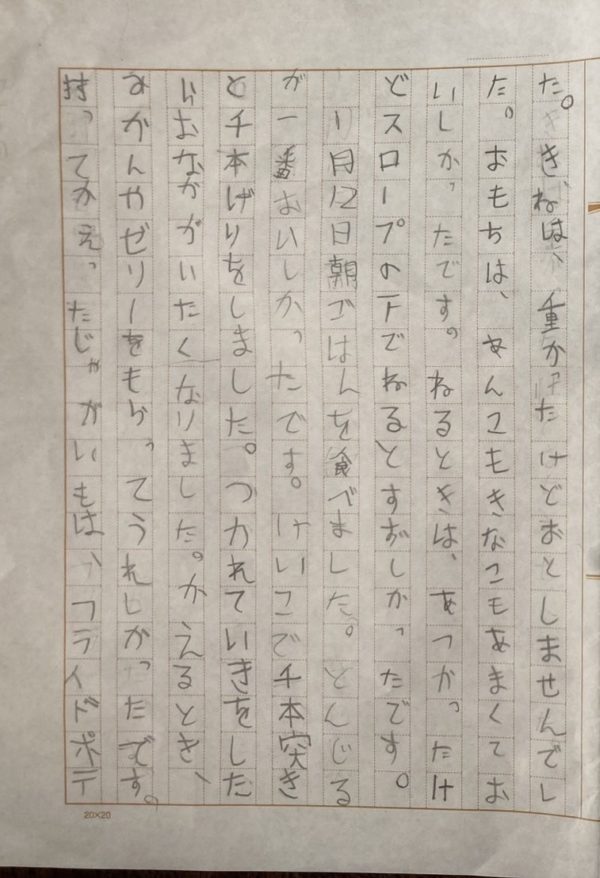 た。きねは、重かったけどおとしませんでし
た。おもちは、あんこもきなこもあまくてお
いしかったです。ねるときは、あつかったけ
どスロープの下でねるとすずしかったです。
1月12日朝ゴはんを食べました。とんじる
が一番おいしかったです。けいこで千本突き
と千本げりをしました。つかれていきをした
らおなかがいたくなりました。かえるとき、
みかんやゼリーをもらってうれしかったです。
持ってかえったじゃがいもは、フライドポテ
20×20